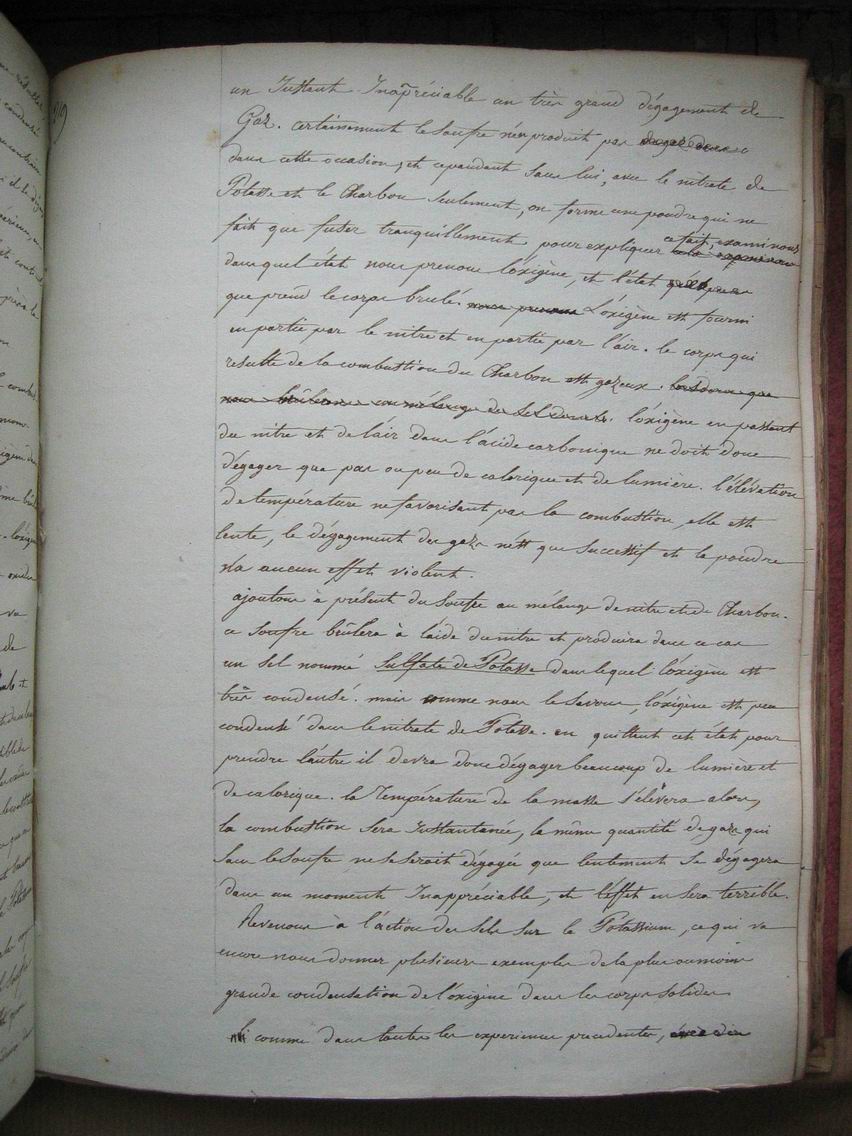 un Instant Inapréciable un très grand dégagement de
Gaz. certainement le soufre n'en produit pas
dans cette occasion, et cependant sans lui, avec le nitrate de
Potasse et le Charbon seulement, on forme une poudre qui ne
fait que fuser tranquillement, pour expliquer ce fait, examinons
dans quel état nous prenons l'oxigène, et l'état
que prend le corps brulé. nous prenons L'oxigène est fourni
en partie par le nitre et en partie par l'air. le corps qui
resulte de la combustion du Charbon est gazeux. lorsdonc que
nous brûlerons un mélange de. l'oxigène en passant
du nitre et de l'air dans l'acide carbonique ne doit donc
dégager que pas ou peu de calorique et de lumière. l'élévation
de température ne favorisant pas la combustion, elle est
lente, le dégagement des gazs n'est que successif et la poudre
n'a aucun effet violent.
ajoutons à présent du soufre au mélange de nitre et de Charbon.
ce soufre brûlera à l'aide du nitre et produira dans ce cas
un sel nommé sulfate de Potasse dans lequel l'oxigène est
très condensé. mais comme nous le savons, l'oxigène est peu
condensé dans le nitrate de Potasse. en quittant cet état pour
prendre l'autre il devra donc dégager beaucoup de lumiere et
de calorique. la Température de la masse s'élevera alors,
la combustion sera Instantanée, la même quantité de gazs qui
sans le soufre ne se serait dégagée que lentement se dégagera
dans un moment Inappréciable, et l'effet en sera terrible.
Revenons à l'action des sels sur le Potassium, ce qui va
encore nous donner plusieurs exemples de la plus ou moins
grande condensation de l'oxigène dans les corps solides
comme dans toutes les experiences precedentes, avec des